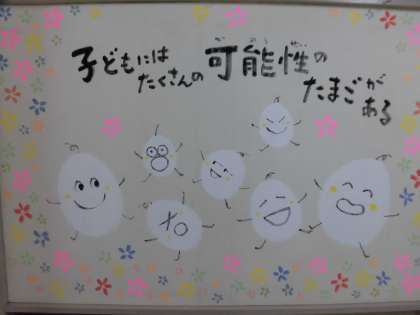 子どもには
たくさんの
可能性の
たまごが
ある